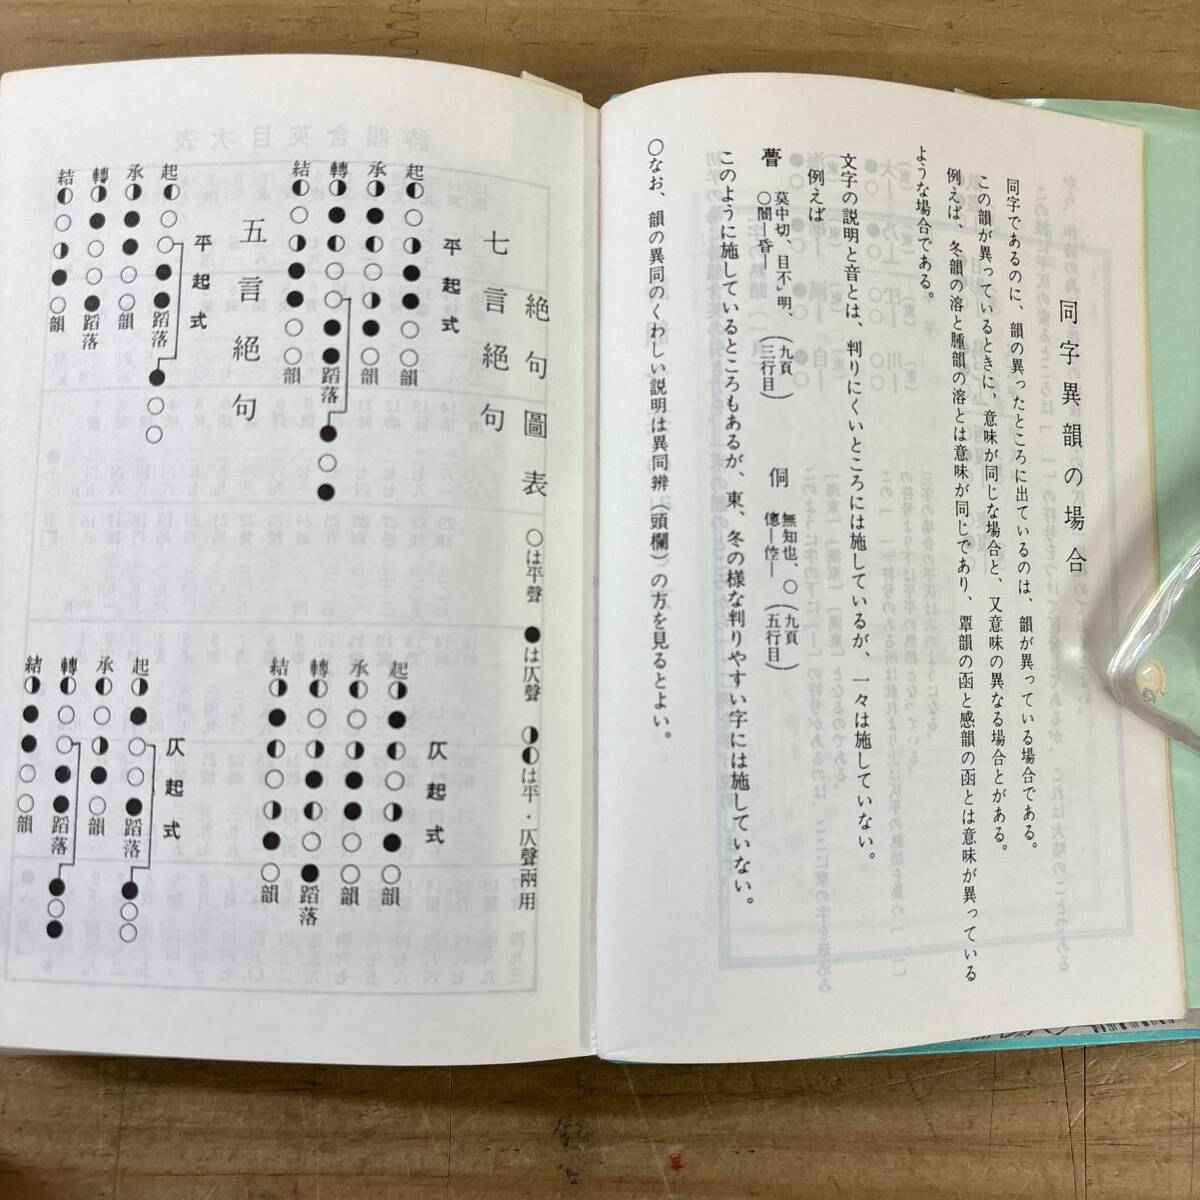 同字異韻の場合
同字であるのに、韻の異ったところに出ているのは、韻が異っている場合である。
この韻が異っているときに、意味が同じな場合と、又意味の異なる場合とがある。
例えば、冬韻の溶と腫韻の溶とは意味が同じであり、覃韻の函と感韻の函とは意味が異っている
ような場合である。
文字の説明と音とは、判りにくいところには施しているが、一々は施していない。
例えば
瞢 莫中切、目不明、〇闇─昏─(九頁三行目)
侗 無知也、〇傯─倥─(九頁五行目)
このように施しているところもあるが、東、冬の様な判りやすい字には施していない。
〇なお、韻の異同のくわしい説明は異同辨(頭欄)の方を見るとよい。
絶句圖表 ○は平聲 ●は仄聲 ◑◐は平・仄聲兩用
七言絶句
平起式
起◐○◑●●○○韻
承◑●◐○◑●○韻
轉◑●◐○○●●蹈落●○●
結◐○◑●●○○韻
仄起式
起◑●◐○◑●○韻
承◐○◑●●○○韻
轉◐○◑●◐○●蹈落
結◑●◐○◑●○韻
五言絶句
平起式
起◐○○●●蹈落●○○
承◑●●○○韻
轉◑●○○●蹈落
結◐○◑●○韻
仄起式
起◑●○○●蹈落●○○
承◐○◑●○韻
轉◐○○●●蹈落●○●
結◑●●○○韻